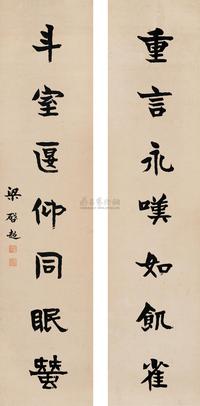 重言永嘆如飢雀
斗室偃仰同眠蠶
梁啓超